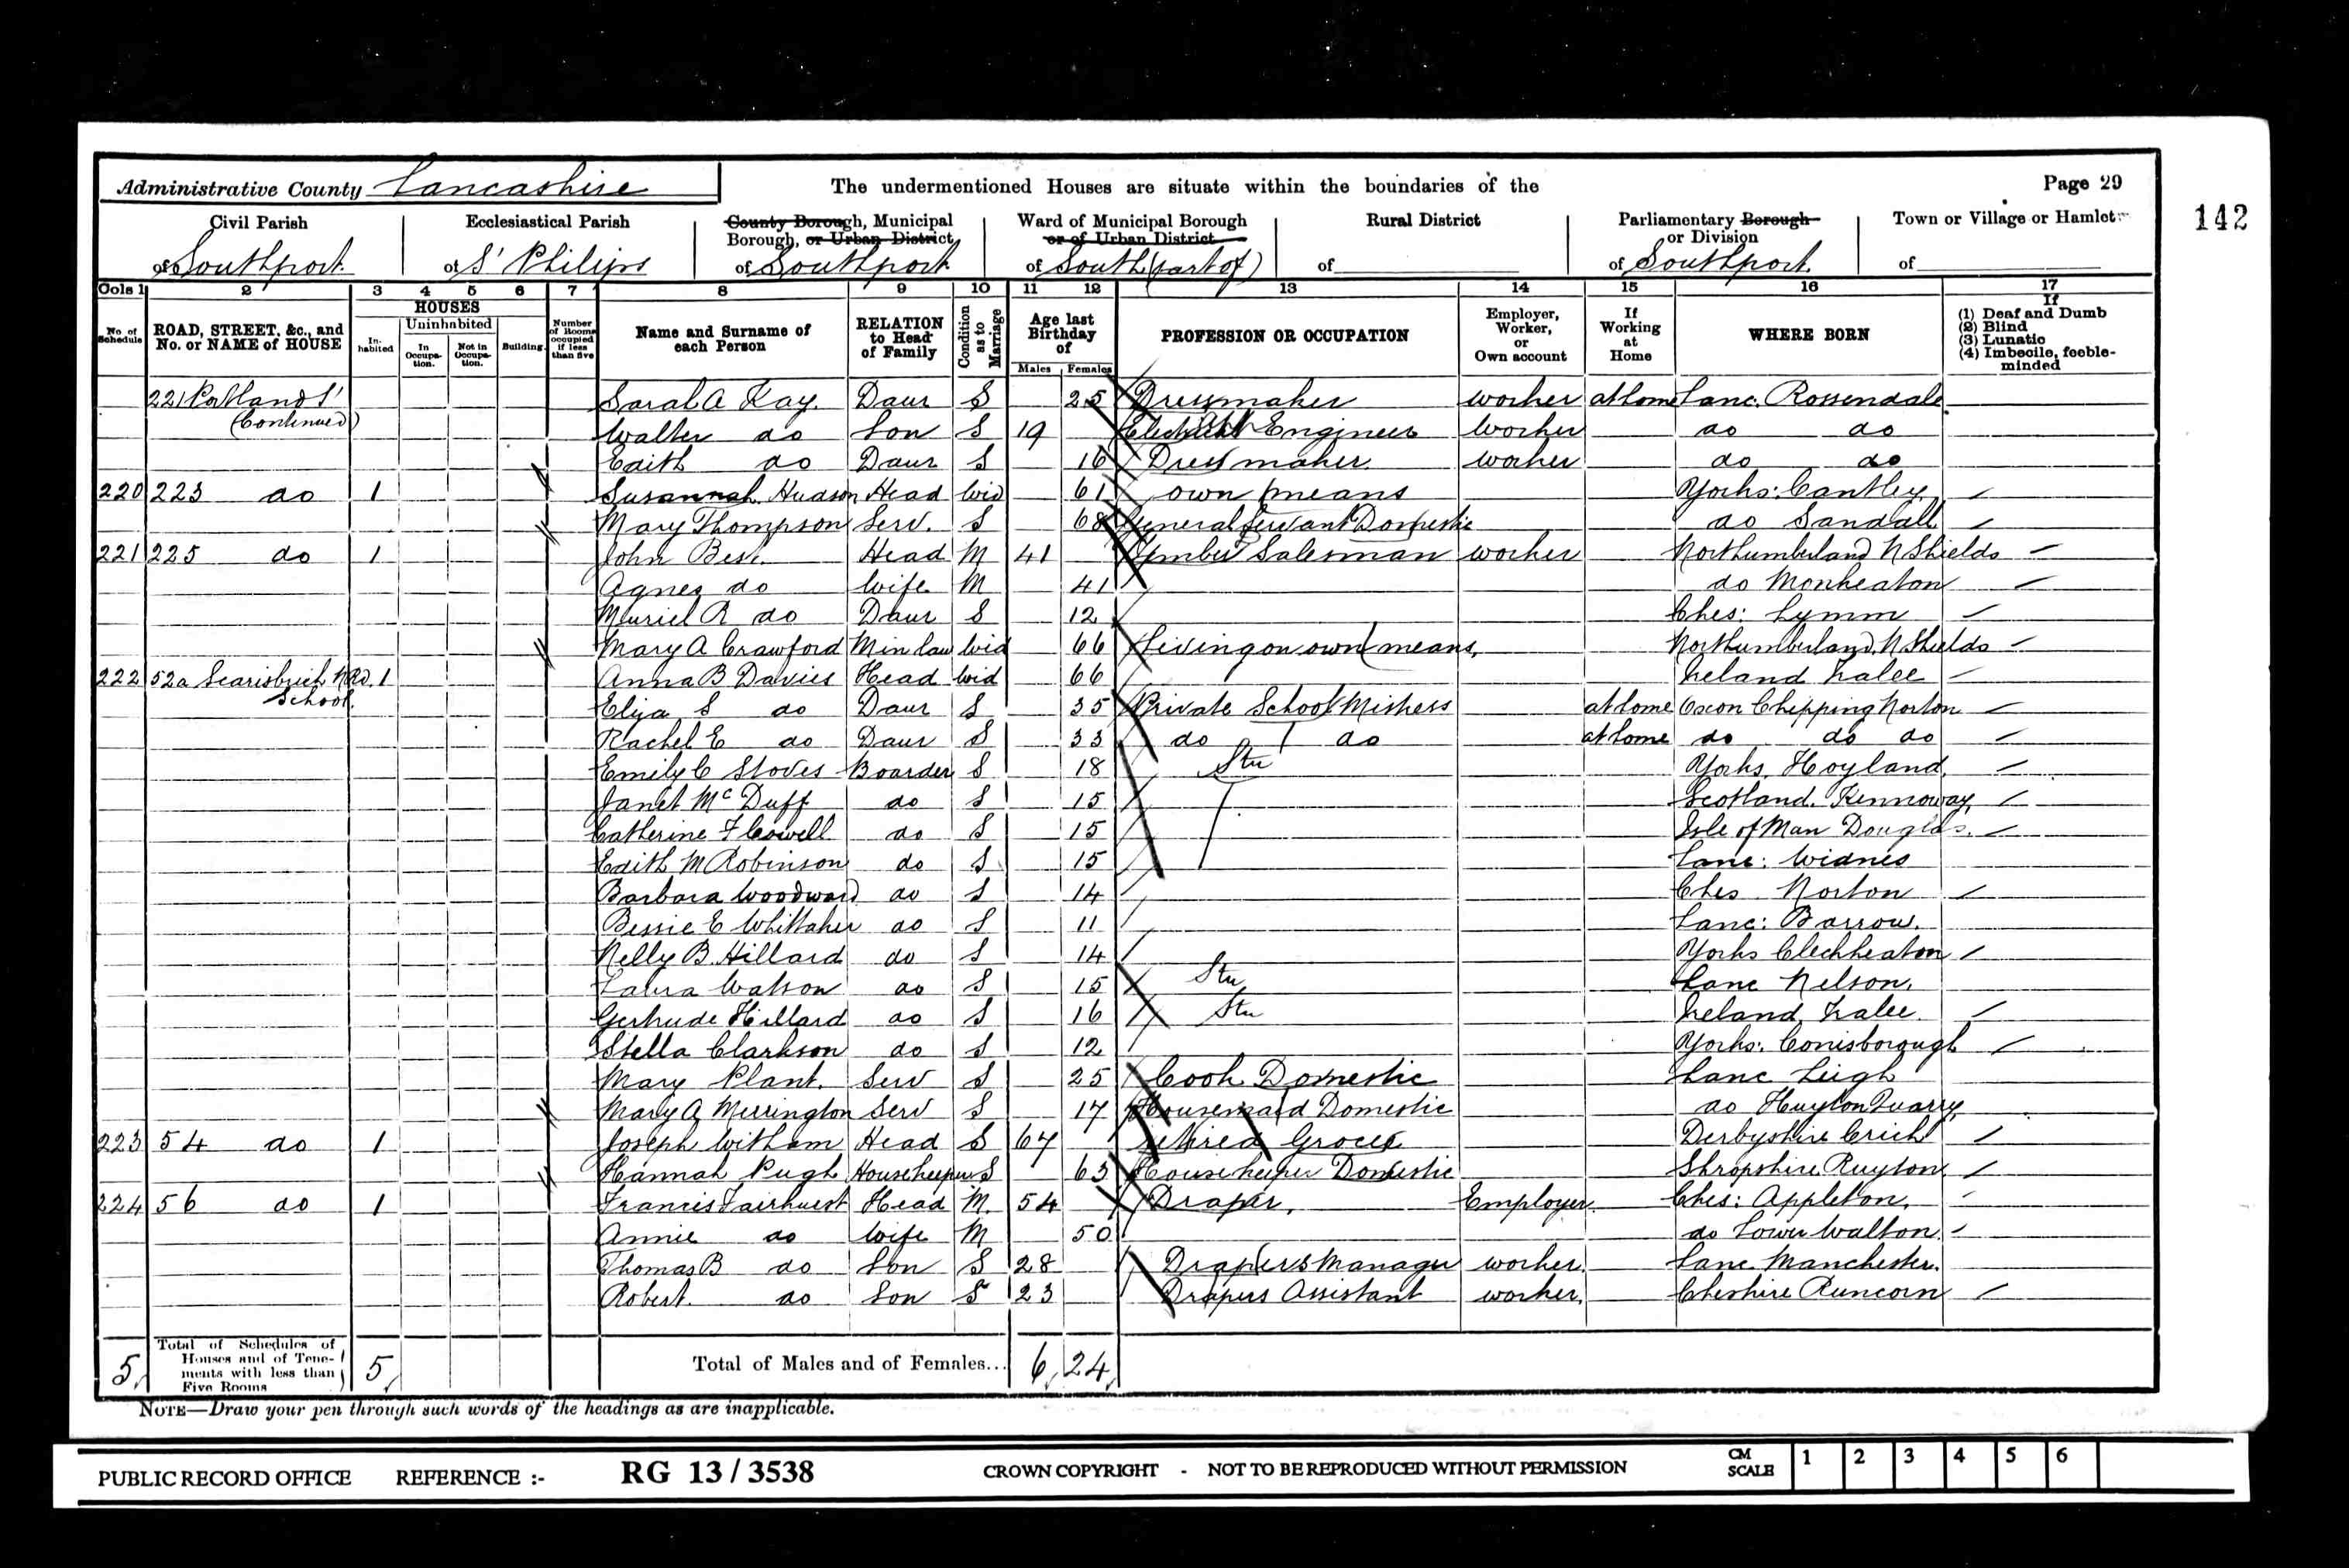 Administrative County Lancashire
The undermentioned Houses are situate within the boundaries of the
Page 29
142
Civil Parish
of Southport
Ecclesiastical Parish
of St Philips
County Borough, Municipal
Borough, or Urban District
of Southport
Ward of Municipal Borough
or of Urban District
of South (part of)
Rural District
of
Parliamentary Borough
or Division
of Southport
Town or Village or Hamlet
of
Cols 1 2 3 4 5 6 7 8 9 10 11 12 13 14 15 16 17
No. of Schedule
ROAD, STREET, &c., and No. or NAME of HOUSE
HOUSES
Inhabited
Uninhabited
In Occupation.
Not in Occupation.
Building.
Number of Rooms occupied if less than five
Name and Surname of each Person
RELATION to Head of Family
Condition as to Marriage
Age last Birthday of
Males Females
PROFESSION OR OCCUPATION
Employer, Worker, or Own account
If Working at Home
WHERE BORN
If
(1) Deaf and Dumb
(2) Blind
(3) Lunatic
(4) Imbecile, feeble-minded
221 Portland St Sarah A Kay. Daur S 25 Dressmaker worker at home Lanc. Rossendale
(Continued) Walter do Son S 19 Electrical Engineer Worker do do
Edith do Daur S 16 Dressmaker worker do do
220 223 do 1 Susannah Hudson Head Wid 61 own means Yorks: Cantley
Mary Thompson Serv. S 68 General Servant Domestic do Sandall
221 225 do 1 John Best. Head M 41 Timber Salesman worker Northumberland N Shields
Agnes do Wife M 41 do Monkeaton
Muriel R do Daur S 12 Ches: Lymm
Mary A Crawford M in law Wid 66 Living on own means, Northumberland, N Shields
222 52a Scarisbrick N Rd. 1 Anna B Davies Head Wid 66 Ireland Tralee
School. Eliza S do Daur S 35 Private School Mistress at home Oxon Chipping Norton
Rachel E do Daur S 33 do do at home do do do
Emily C Stoves Boarder S 18 Stu Yorks. Hoyland.
Janet McDuff do S 15 Scotland. Kennoway
Catherine F Cowell do S 15 Isle of Man Douglas.
Edith M Robinson do S 15 Lanc: Widnes
Barbara Woodward do S 14 Ches. Norton
Bessie E Whittaker do S 11 Lanc: Barrow.
Nelly B. Hillard do S 14 Yorks Cleckheaton
Laura Watson do S 15 Stu Lanc Nelson.
Gertrude Hillard do S 16 Stu Ireland Tralee.
Stella Clarkson do S 12 Yorks. Conisborough
Mary Plant. Serv S 25 Cook Domestic Lanc Leigh
Mary A Merrington Serv S 17 Housemaid Domestic do Huyton Quarry
223 54 do 1 Joseph Witham Head S 67 retired Grocer Derbyshire Crich
Hannah Pugh Housekeeper S 63 Housekeeper Domestic Shropshire. Ruyton
224 56 do 1 Francis Fairhurst Head M. 54 Draper, Employer Ches: Appleton,
Annie do Wife M 50 do Lower Walton
Thomas B do Son S 28 Drapers Manager worker. Lanc Manchester.
Robert. do Son S 23 Drapers Assistant worker. Cheshire Runcorn
5 Total of Schedules of Houses and of Tenements with less than Five Rooms 5 Total of Males and of Females... 6 24
NOTE—Draw your pen through such words of the headings as are inapplicable.
PUBLIC RECORD OFFICE REFERENCE :- RG 13 / 3538 CROWN COPYRIGHT - NOT TO BE REPRODUCED WITHOUT PERMISSION CM SCALE 1 2 3 4 5 6